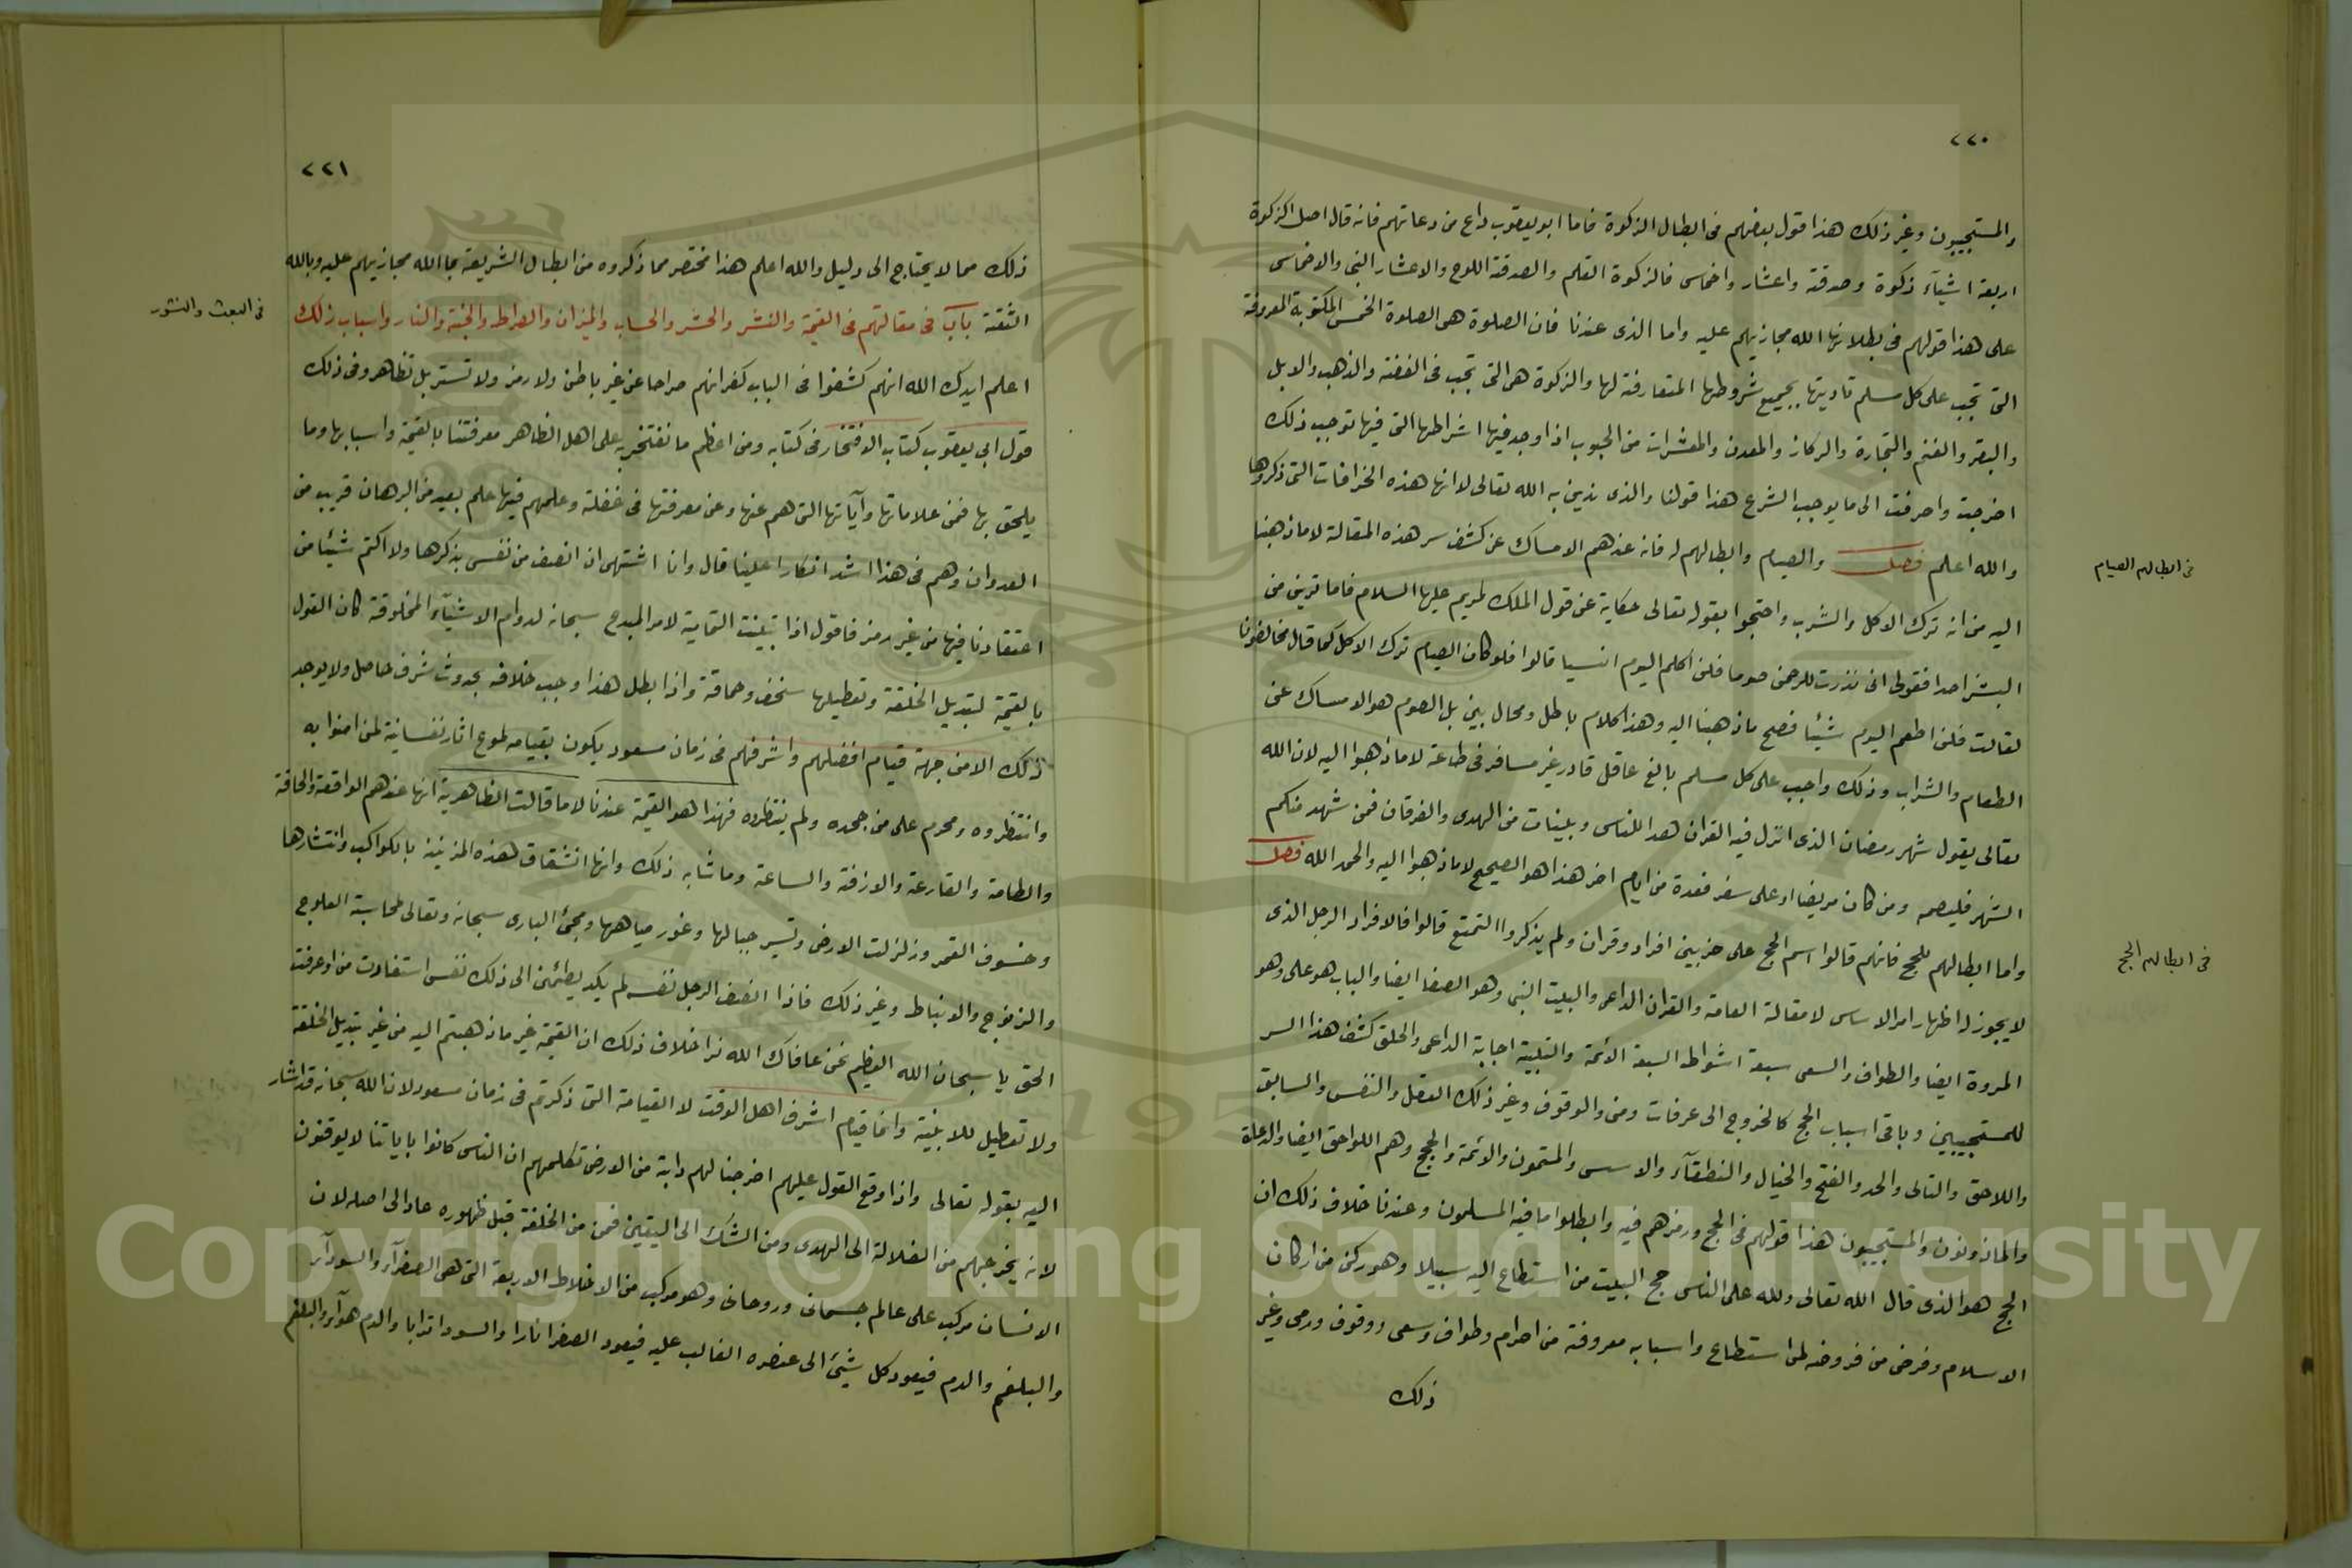 ٢٢٠
والمستجيبون وغير ذلك هذا قول بعضهم فى ابطال الزكوة فاما ابو يعقوب داع من دعاتهم فانه قال اصل الزكوة
اربعة اشيآء زكوة وصدقة واعشار واخماس فالزكوة القلم والصدقة اللوح والاعشار النبى والاخماس
على هذا قولهم فى بطلانها الله مجازيهم عليه واما الذى عندنا فان الصلوة هى الصلوة الخمس المكتوبة المعروفة
التى تجب على كل مسلم تاديتها بجميع شروطها المتعارفة لها والزكوة هى التى تجب فى الفضة والذهب والابل
والبقر والغنم والتجارة والركاز والمعدن والمعشرات من الحبوب اذا وجد فيها اشراطها التى فيها توجب ذلك
اخرجت واصرفت الى ما يوجب الشرع هذا قولنا والذى ندين به الله تعالى لا انها هذه الخرافات التى ذكروها
والله اعلم فصل والصيام وابطالهم له فانه عندهم الامساك عن كشف سر هذه المقالة لا ما ذهبنا
فى ابطالهم الصيام
اليه من انه ترك الاكل والشرب واحتجوا بقوله تعالى حكاية عن قول الملك لمريم عليها السلام فاما ترين من
البشر احدا فقولى انى نذرت للرحمن صوما فلن اكلم اليوم انسيا قالوا فلو كان الصيام ترك الاكل كما قال مخالفونا
لقالت فلن اطعم اليوم شيئا فصح ما ذهبنا اليه وهذا كلام باطل ومحال بين بل الصوم هو الامساك عن
الطعام والشراب وذلك واجب على كل مسلم بالغ عاقل قادر غير مسافر فى طاعة لا ما ذهبوا اليه لان الله
تعالى يقول شهر رمضان الذى انزل فيه القران هدا للناس وبينات من الهدى والفرقان فمن شهد منكم
الشهر فليصمه ومن كان مريضا او على سفر فعدة من ايام اخر هذا هو الصحيح لا ما ذهبوا اليه والحمد الله فصل
واما ابطالهم للحج فانهم قالوا اسم الحج على ضربين افراد وقران ولم يذكروا التمتع قالوا فالافراد الرجل الذى
فى ابطالهم الحج
لا يجوز له اظهار امر الاساس لا مقالة العامة والقران الداعى والبيت النبى وهو الصفا ايضا والباب هو على وهو
المروة ايضا والطواف والسعى سبعة اشواط السبعة الائمة والتلبية اجابة الداعى والحلق كشف هذا السر
للمستجيبين وباقى اسباب الحج كالخروج الى عرفات ومنى والوقوف وغير ذلك العقل والنفس والسابق
واللاحق والتالى والجد والفتح والخيال والنطقآء والاسس والمتمون والائمة والحجج وهم اللواحق ايضا والدعاة
والماذونون والمستجيبون هذا قولهم فى الحج ورمزهم فيه وابطلوا ما فيه المسلمون وعندنا خلاف ذلك ان
الحج هو الذى قال الله تعالى ولله على الناس حج البيت من استطاع اليه سبيلا وهو ركن من اركان
الاسلام وفرض من فروضه لمن استطاع واسبابه معروفة من احرام وطواف وسعى ووقوف ورمى وغير
ذلك
٢٢١
ذلك مما لا يحتاج الى دليل والله اعلم هذا مختصر مما ذكروه من ابطال الشريعة بما الله مجازيهم عليه وبالله
الثقة باب فى مقالتهم فى القيمة والنشر والحشر والحساب والميزان والصراط والجنة والنار واسباب ذلك
فى البعث والنشور
اعلم ايدك الله انهم كشفوا فى الباب كفرانهم صراحا عن غير باطن ولا رمز ولا تستر بل تظاهروا فى ذلك
قول ابى يعقوب كتاب الافتخار فى كتابه ومن اعظم ما نفتخر به على اهل الظاهر معرفتنا بالقيمة واسبابها وما
يلحق بها فمن علاماتها وآياتها التى هم عنها وعن معرفتها فى غفلة وعلمهم فيها علم بعيد من البرهان قريب من
العدوان وهم فى هذا اشد انكارا علينا قال وانا اشتهى ان انصف من نفسى بذكرها ولا اكتم شيئا من
اعتقادنا فيها من غير رمز فاقول اذا تبينت التمامية لامر المبدع سبحانه لدوام الاشيآء المخلوقة كان القول
بالقيمة لتبديل الخلقة وتعطيلها سخف وحماقة واذا بطل هذا وجب خلافه بحدوث شرف حاصل ولا يوجد
ذلك الا من جهة قيام افضلهم واشرفهم فى زمان مسعود يكون بقيامه طلوع اثار نفسانية لمن امنوا به
وانتظروه ومحرم على من جحده ولم ينتظره فهذا هو القيمة عندنا لا ما قالت الظاهرية انها عندهم الواقعة والحاقة
والطامة والقارعة والازفة والساعة وما شابه ذلك وانها انشقاق هذه المزينة بالكواكب وانتشارها
وخسوف القمر وزلزلت الارض وتسير جبالها وغور مياهها ومجئ البارى سبحانه وتعالى لمحاسبة العلوج
والزنوج والانباط وغير ذلك فاذا انصف الرجل نفسه لم يكد يطمئن الى ذلك نفس استفادت من اوعرفت
الحق يا سبحان الله العظيم نحن عافاك الله نرا خلاف ذلك ان القيمة غير ما ذهبتم اليه من غير تبديل الخلقة
ولا تعطيل للابنية وانما قيام اشرف اهل الوقت لا القيامة التى ذكرتم فى زمان مسعود لان الله سبحانه قد اشار
اليه بقوله تعالى واذا وقع القول عليهم اخرجنا لهم دابة من الارض تكلمهم ان الناس كانوا باياتنا لا يوقنون
لانه يخرجهم من الضلالة الى الهدى ومن الشك الى اليقين فمن من الخلقة قبل ظهوره عاد الى اصله لان
الانسان مركب على عالم جسمانى وروحانى وهو مركب من الاخلاط الاربعة التى هى الصفرآء والسودآء
والبلغم والدم فيعود كل شئ الى عنصره الغالب عليه فيعود الصفرا نارا والسودا ترابا والدم هوآء والبلغم
Copyright © King Saud University
1957